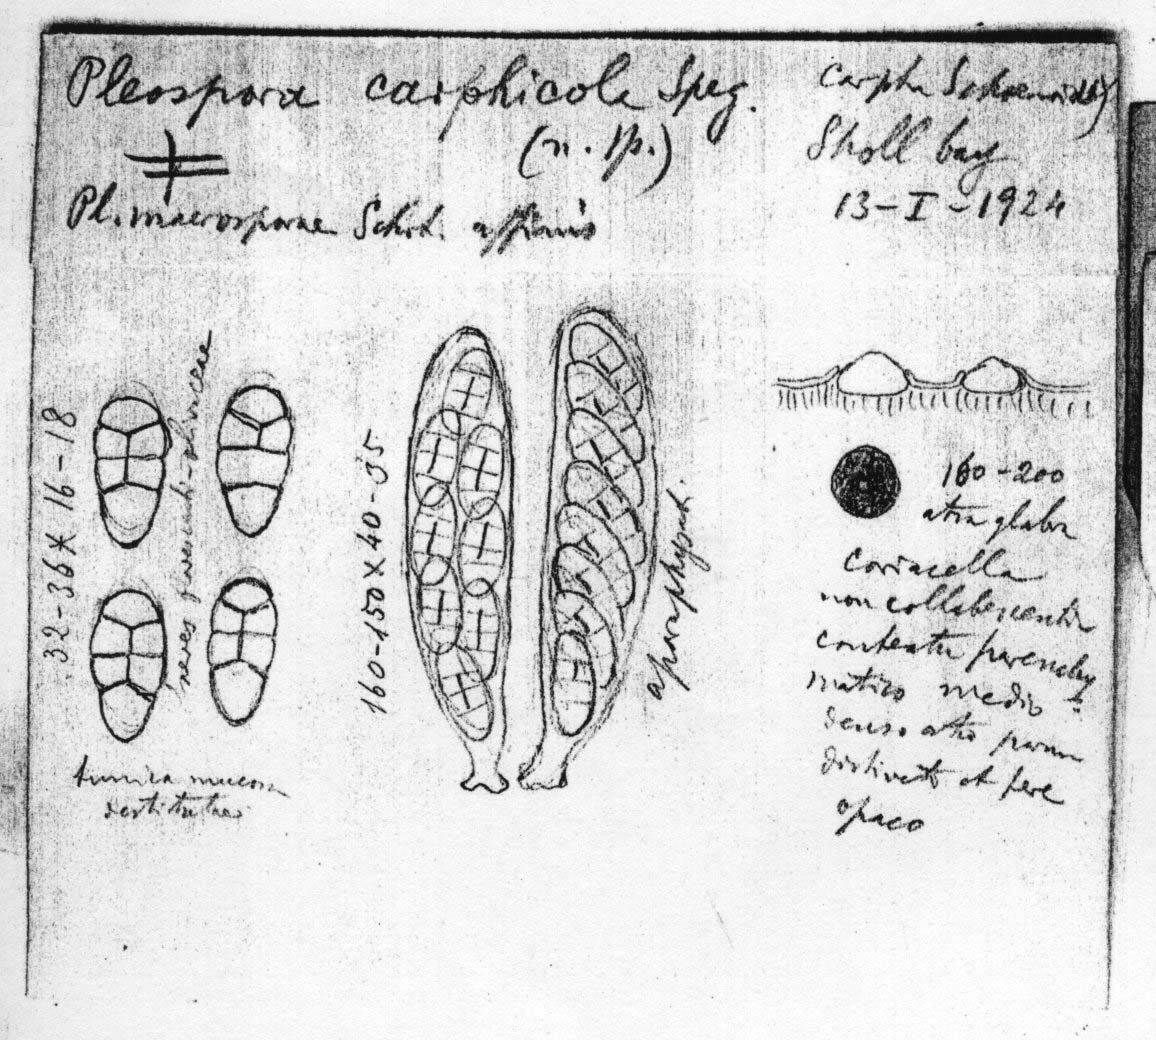 Pleospora carphicola Speg.
(n. sp.)
≠
Pl. macrosporae Schrt. affinis
Carpha Schoenoides
Sholl bay
13-I-1924
32-36 × 16-18
160-150 × 40-35
aparaphysat.
160-200
atra glabra
coriacella
non collabescentia
contextu parenchy
matico medio
denso atro parum
distincto et fere
opaco
tunica mucosa
destitutae